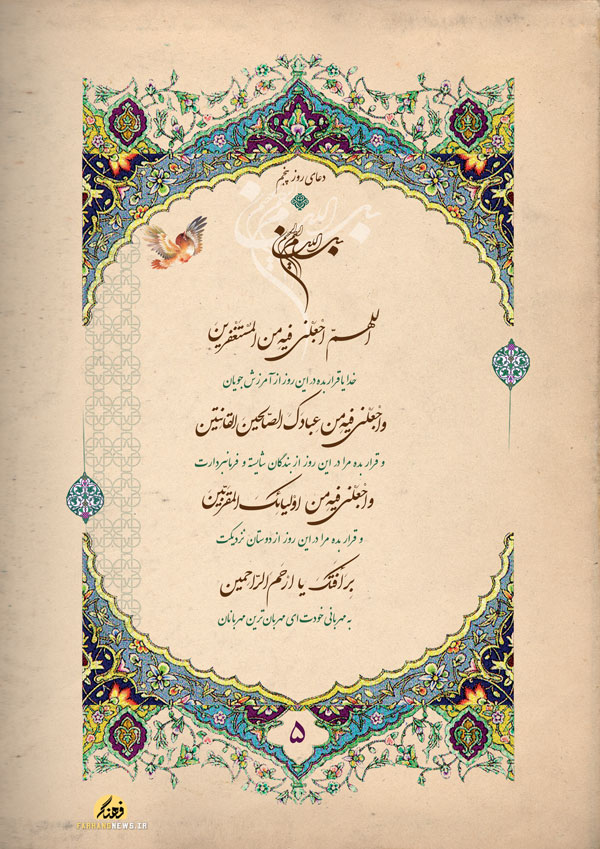 دعای روز پنجم
بسم الله الرحمن الرحیم
اللهمّ اجْعلنی فیهِ من المُسْتغْفرین
خدایا قرار بده در این روز از آمرزش جویان
واجْعلنی فیهِ من عبادکَ الصالحین القانتین
و قرار بده مرا در این روز از بندگان شایسته و فرمانبردارت
واجْعلنی فیهِ من اوْلیائِکَ المقرّبین
و قرار بده مرا در این روز از دوستان نزدیکت
برأفتکَ یا ارْحم الرّاحمین
به مهربانی خودت ای مهربان ترین مهربانان
۵
فرهنگ
FARHANGNEWS.IR